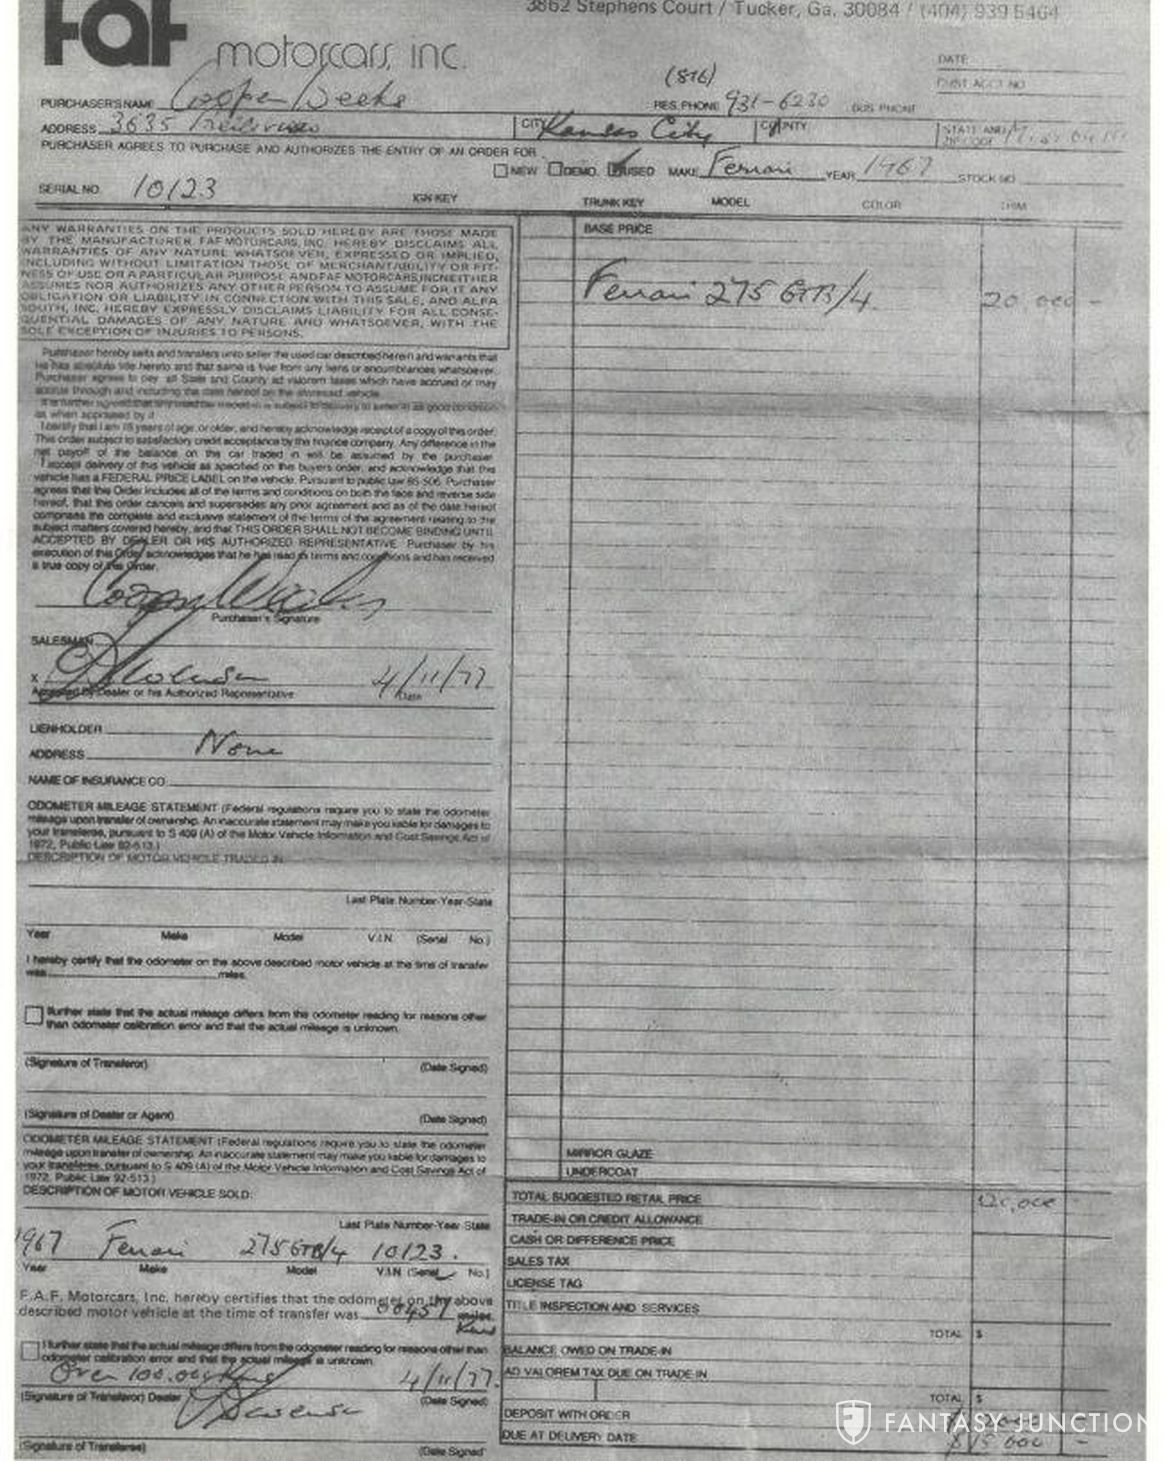 FAF motorcars, inc.
3862 Stephens Court / Tucker, Ga. 30084 / (404) 939 5464
DATE
CUST ACCT NO
PURCHASER'S NAME Cooper Weeks
(816)
RES. PHONE 931-6230 BUS PHONE
ADDRESS 3635 CITY Kansas City COUNTY STATE AND ZIP CODE
PURCHASER AGREES TO PURCHASE AND AUTHORIZES THE ENTRY OF AN ORDER FOR
NEW DEMO. USED MAKE Ferrari YEAR 1967 STOCK NO
SERIAL NO. 10123 IGN KEY TRUNK KEY MODEL COLOR TRIM
ANY WARRANTIES ON THE PRODUCTS SOLD HEREBY ARE THOSE MADE
BY THE MANUFACTURER. FAF MOTORCARS, INC. HEREBY DISCLAIMS ALL
WARRANTIES OF ANY NATURE WHATSOEVER, EXPRESSED OR IMPLIED,
INCLUDING WITHOUT LIMITATION THOSE OF MERCHANTABILITY OR FIT-
NESS OF USE OR A PARTICULAR PURPOSE AND FAF MOTORCARS, INC NEITHER
ASSUMES NOR AUTHORIZES ANY OTHER PERSON TO ASSUME FOR IT ANY
OBLIGATION OR LIABILITY IN CONNECTION WITH THIS SALE, AND ALFA
SOUTH, INC. HEREBY EXPRESSLY DISCLAIMS LIABILITY FOR ALL CONSE-
QUENTIAL DAMAGES OF ANY NATURE AND WHATSOEVER, WITH THE
SOLE EXCEPTION OF INJURIES TO PERSONS.
BASE PRICE
Ferrari 275 GTB/4. 20,000 -
Purchaser hereby sells and transfers unto seller the used car described herein and warrants that
he has absolute title hereto and that same is free from any liens or encumbrances whatsoever.
Purchaser agrees to pay all State and County ad valorem taxes which have accrued or may
accrue through and including the date hereof on the aforesaid vehicle.
It is further agreed that any used car traded in is subject to delivery to seller in as good condition
as when appraised by it
I certify that I am 18 years of age, or older, and hereby acknowledge receipt of a copy of this order.
This order subject to satisfactory credit acceptance by the finance company. Any difference in the
net payoff of the balance on the car traded in will be assumed by the purchaser.
I accept delivery of this vehicle as specified on this buyers order, and acknowledge that this
vehicle has a FEDERAL PRICE LABEL on the vehicle. Pursuant to public law 85-506. Purchaser
agrees that this Order includes all of the terms and conditions on both the face and reverse side
hereof, that this order cancels and supersedes any prior agreement and as of the date hereof
comprises the complete and exclusive statement of the terms of the agreement relating to the
subject matters covered hereby, and that THIS ORDER SHALL NOT BECOME BINDING UNTIL
ACCEPTED BY DEALER OR HIS AUTHORIZED REPRESENTATIVE. Purchaser by his
execution of this Order acknowledges that he has read its terms and conditions and has received
a true copy of this Order.
Cooper Weeks
Purchaser's Signature
SALESMAN
X 4/11/77
Accepted By Dealer or his Authorized Representative Date
LIENHOLDER
ADDRESS None
NAME OF INSURANCE CO.
ODOMETER MILEAGE STATEMENT (Federal regulations require you to state the odometer
mileage upon transfer of ownership. An inaccurate statement may make you liable for damages to
your transferee, pursuant to S 409 (A) of the Motor Vehicle Information and Cost Savings Act of
1972, Public Law 92-513.)
DESCRIPTION OF MOTOR VEHICLE TRADED IN:
Last Plate Number-Year-State
Year Make Model V.I.N. (Serial No.)
I hereby certify that the odometer on the above described motor vehicle at the time of transfer
was miles.
I further state that the actual mileage differs from the odometer reading for reasons other
than odometer calibration error and that the actual mileage is unknown.
(Signature of Transferor) (Date Signed)
(Signature of Dealer or Agent) (Date Signed)
ODOMETER MILEAGE STATEMENT (Federal regulations require you to state the odometer
mileage upon transfer of ownership. An inaccurate statement may make you liable for damages to
your transferee, pursuant to S 409 (A) of the Motor Vehicle Information and Cost Savings Act of
1972, Public Law 92-513.)
DESCRIPTION OF MOTOR VEHICLE SOLD:
Last Plate Number-Year State
1967 Ferrari 275 GTB/4 10123.
Year Make Model V.I.N. (Serial No.)
F.A.F. Motorcars, Inc. hereby certifies that the odometer on the above
described motor vehicle at the time of transfer was miles.
I further state that the actual mileage differs from the odometer reading for reasons other than
odometer calibration error and that the actual mileage is unknown.
Over 100,000 4/11/77.
(Signature of Transferor) Dealer (Date Signed)
(Signature of Transferee) (Date Signed)
MIRROR GLAZE
UNDERCOAT
TOTAL SUGGESTED RETAIL PRICE 20,000 -
TRADE-IN OR CREDIT ALLOWANCE
CASH OR DIFFERENCE PRICE
SALES TAX
LICENSE TAG
TITLE INSPECTION AND SERVICES
TOTAL $
BALANCE OWED ON TRADE-IN
AD VALOREM TAX DUE ON TRADE-IN
TOTAL $
DEPOSIT WITH ORDER
DUE AT DELIVERY DATE $ 15 000 -
FANTASY JUNCTION